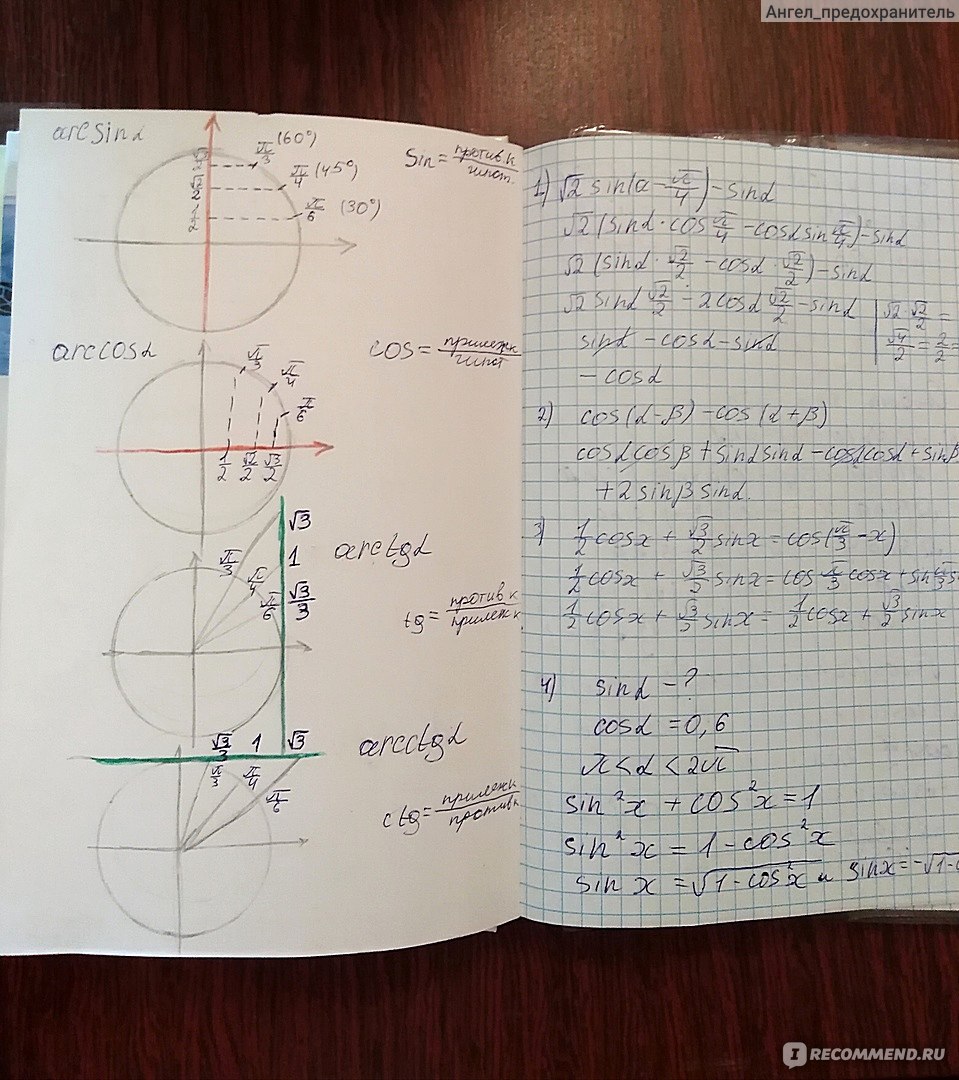 Ангел_предохранитель
arcsinα
π/3 (60°)
π/4 (45°)
π/6 (30°)
sin = против к / гипот.
arccosα
π/3
π/4
π/6
1/2 √2/2 √3/2
cos = прилеж к / гипот
√3
1
√3/3
π/3
π/4
π/6
arctgα
tg = против к / прилеж к
√3/3 1 √3
π/3 π/4 π/6
arcctgα
ctg = прилеж к / против к
1) √2 sin(α - π/4) - sinα
√2 (sinα · cos π/4 - cosα sin π/4) - sinα
√2 (sinα · √2/2 - cosα · √2/2) - sinα
√2 sinα √2/2 - 2cosα √2/2 - sinα
√2 · √2/2 =
√4/2 = 2/2 =
sinα - cosα - sinα
- cosα
2) cos(α-β) - cos(α+β)
cosα cosβ + sinα sinα - cosα cosα + sinβ
+ 2 sinβ sinα.
3) 1/2 cosx + √3/2 sinx = cos(π/3 - x)
1/2 cosx + √3/2 sinx = cos π/3 cosx + sin π/3 s
1/2 cosx + √3/2 sinx = 1/2 cosx + √3/2 sinx
4) sinα - ?
cosα = 0,6
π < α < 2π
sin²x + cos²x = 1
sin²x = 1 - cos²x
sin x = √1 - cos²x и sinx = -√1-c
IRECOMMEND.RU